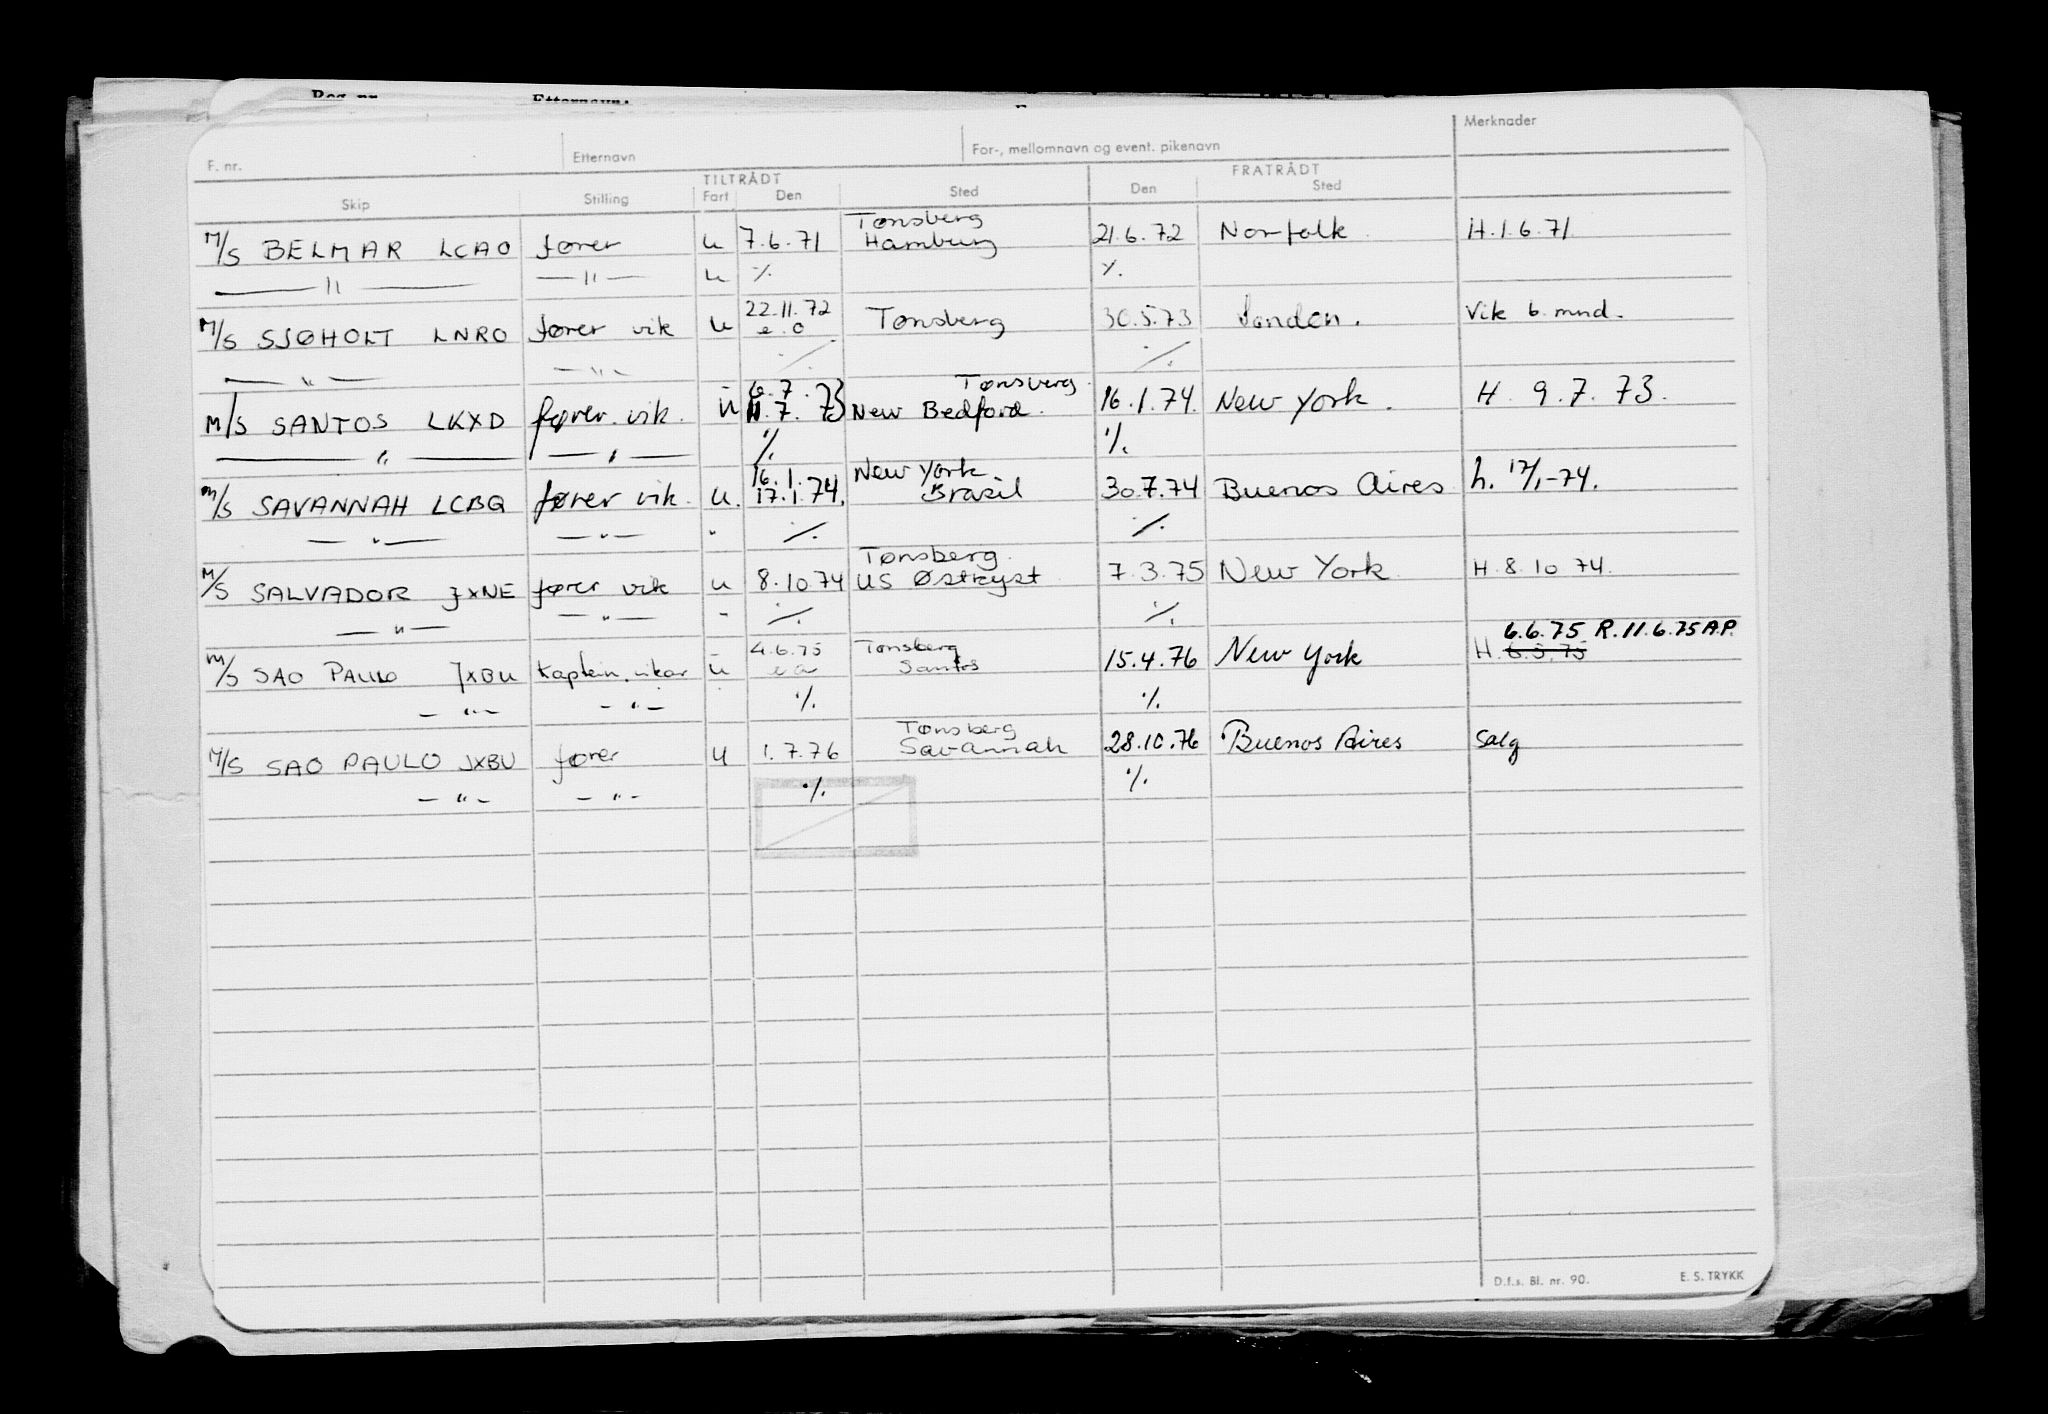 F. nr. Etternavn For-, mellomnavn og event. pikenavn Merknader
TILTRÅDT FRATRÅDT
Skip Stilling Fart Den Sted Den Sted
Tønsberg
M/S BELMAR LCAO fører u 7.6.71 Hamburg 21.6.72 Norfolk H.1.6.71
— " — — " — u ·/. ·/.
22.11.72
M/S SJØHOLT LNRO fører vik u e.o Tønsberg 30.5.73 London. Vik 6. mnd.
— " — — " — ·/. ·/.
6.7.73 Tønsberg
M/S SANTOS LKXD fører vik. u 11.7.73 New Bedford. 16.1.74. New York. H. 9.7.73.
— " — — " — ·/. ·/.
16.1. New York
M/S SAVANNAH LCBQ fører vik. u. 17.1.74. Brasil 30.7.74 Buenos Aires h. 17/1-74.
— " — — " — " ·/. ·/.
Tønsberg.
M/S SALVADOR JXNE fører vik u 8.10.74 US Østkyst 7.3.75 New York. H. 8.10.74.
— " — — " — - ·/. ·/.
4.6.75 Tønsberg 6.6.75. R.11.6.75 A.P.
M/S SAO PAULO JXBU Kaptein, vikar u Santos 15.4.76 New York H. 6.5.75
— " — — " — ·/. ·/.
Tønsberg
M/S SAO PAULO JXBU fører u 1.7.76 Savannah 28.10.76 Buenos Aires Salg
— " — — " — ·/. ·/.
D.f.s. Bl. nr. 90. E. S. TRYKK